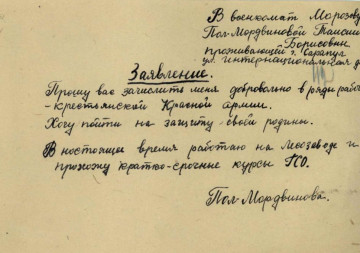 В военкомат Морозову
Пол-Мордвиновой Таисии
Борисовны
проживающей г. Сарапул
ул. Интернациональная д
Заявление.
Прошу вас зачислить меня добровольно в ряды рабоче
-крестьянской Красной армии.
Хочу пойти на защиту своей родины.
В ностоящее время работаю на Лесозаводе и
прохожу кратко-срочные курсы
Пол-Мордвинова.